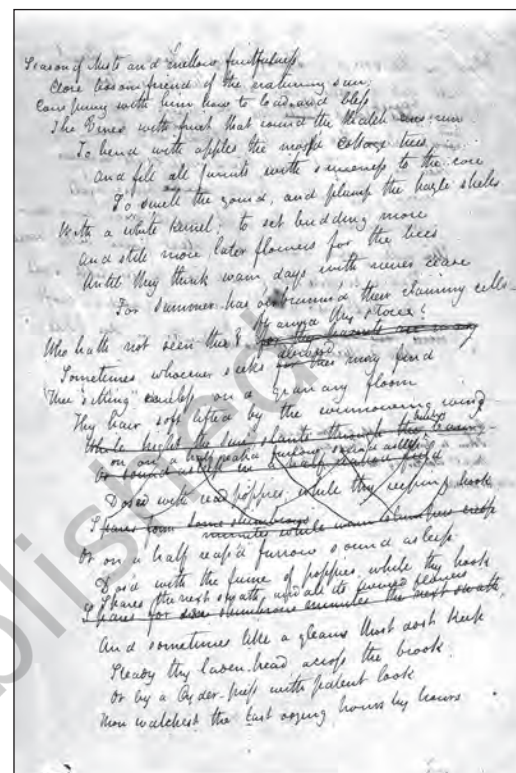 Season of Mists and mellow fruitfulness
Close bosom friend of the maturing sun;
Conspiring with him how to load and bless
The Vines with fruit that round the thatch eves run
To bend with apples the moss'd Cottage trees
and fill all fruits with sweeness to the core
To swell the gourd, and plump the hazle shells
With a white kernel; to set budding more
and still more later flowers for the bees
Until they think wam days with never cease
For Summer has o'erbrimm'd their clammy cells
oft amid thy stores?
Who hath not seen thee? for thy haunts are many
abroad
Sometimes whoever seeks for thee may find
Thee sitting careless on a granary floor
Thy hair soft lifted by the winnowing wind
While bright the Sun slants through the
on on a half reap'd furrow sound asleep
Or sound asleep in a half reaped field
Dosed with read poppies; while thy reeping hook
Spares some slumbrous
minutes while wam slumpers creep
Or on a half reap'd furrow sound asleep
Dos'd with the fume of poppies, while thy hook
Spares the next swath, and all its twined flowers
Spares for some slumbrous minutes the next swath;
And sometimes like a gleans thost dost keep
Steady thy laden head across the brook;
Or by a Cyder-press with patent look
Thou watchest the last oozing hours by hours
blished